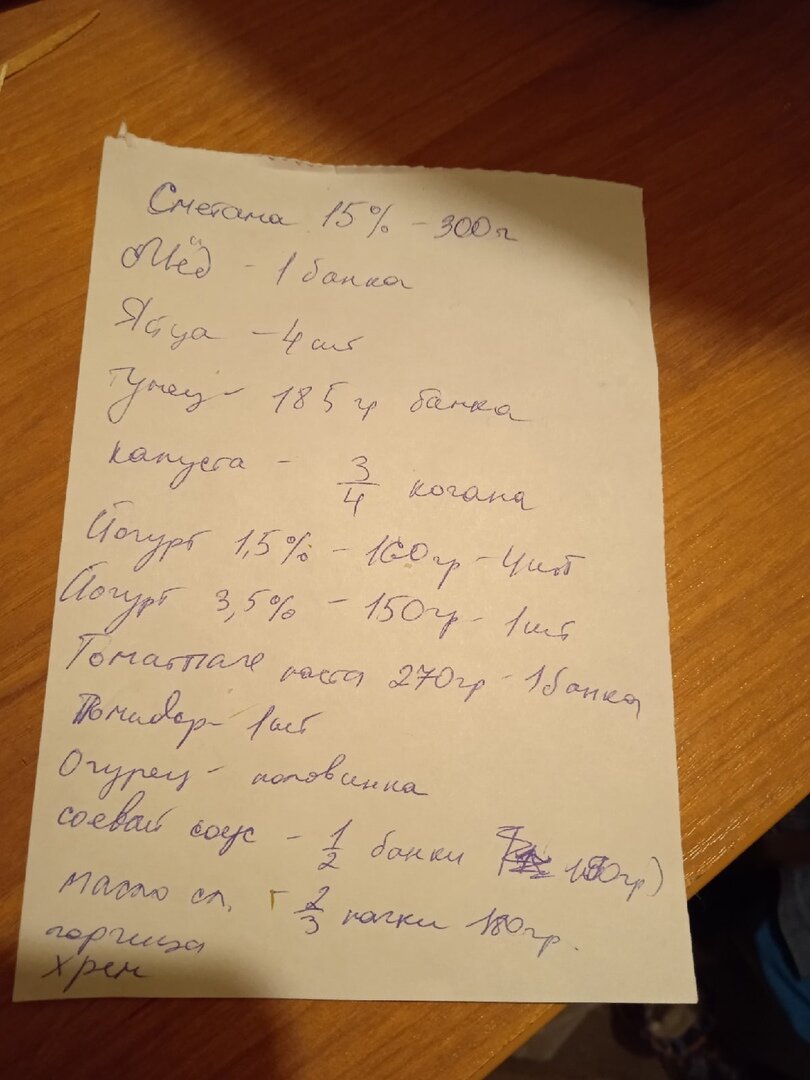 Сметана 15% - 300г
Мёд - 1 банка
Яйца - 4 шт
тунец - 185 гр банка
капуста - 3/4 кочана
Йогурт 1,5% - 160гр - 4шт
Йогурт 3,5% - 150гр - 1шт
паста 270гр - 1банка
Помидор - 1шт
Огурец - половинка
соевай соус - 1/2 банки гр)
масло сл. - 2/3 пачки 180гр.
горчица
хрен